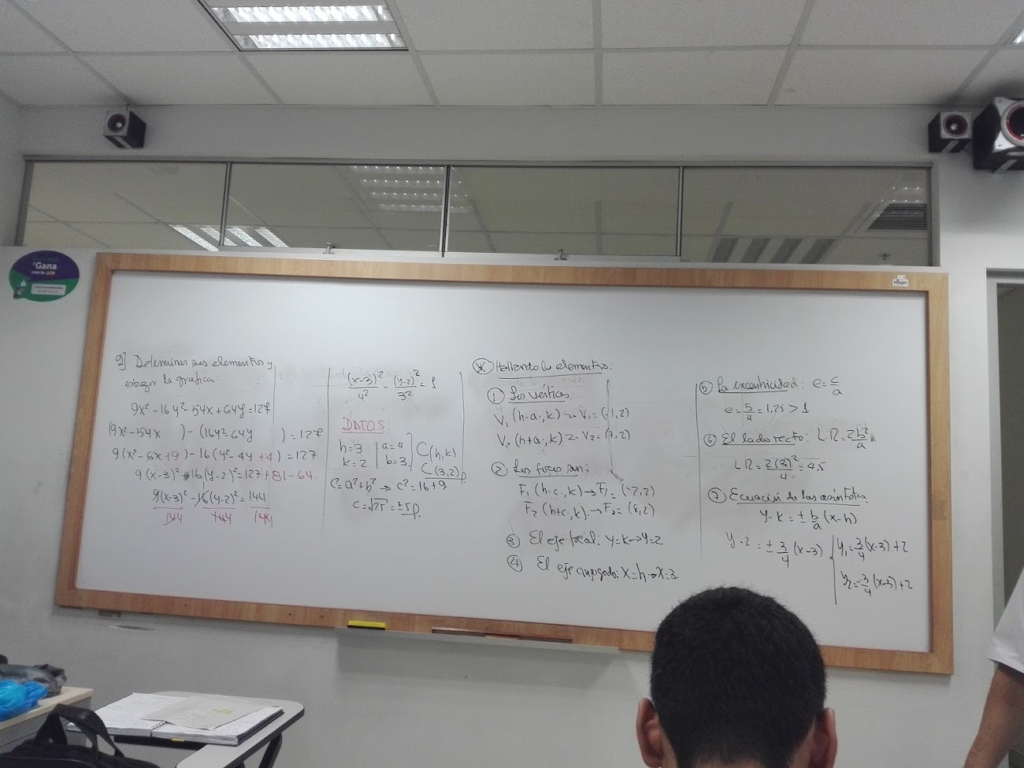 Gana
9] Determinar sus elementos y
esbozar la grafica.
9x² - 16y² - 54x + 64y = 127
(9x² - 54x ) - (16y² - 64y ) = 127
9(x² - 6x + 9) - 16(y² - 4y + 4) = 127
9(x-3)² - 16(y-2)² = 127 + 81 - 64
9(x-3)² - 16(y-2)² = 144
144 144 144
(x-3)² - (y-2)² = 1
4² 3²
DATOS:
h=3 | a=4
k=2 | b=3
C(h,k)
C(3,2)
c²=a²+b² → c²=16+9
c=√25=±5
* Hallando los elementos:
① Los vértices:
V₁(h-a,k) → V₁=(-1,2)
V₂(h+a,k) → V₂=(7,2)
② Los focos son:
F₁(h-c,k) → F₁=(-2,2)
F₂(h+c,k) → F₂=(8,2)
③ El eje focal: y=k → y=2
④ El eje conjugado: x=h → x=3
⑤ La excentricidad: e=c/a
e=5/4=1,25>1
⑥ El lado recto: LR=2b²/a
LR=2(3)²/4=4.5
⑦ Ecuación de las asíntotas
y-k=±b/a(x-h)
y-2=±3/4(x-3)
y₁=3/4(x-3)+2
y₂=-3/4(x-3)+2